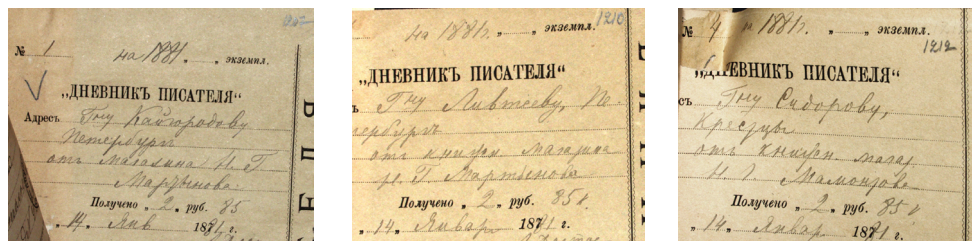 № 1 на 1881 „ „ экземпл.
„ДНЕВНИКЪ ПИСАТЕЛЯ“
Адресъ Гну Кайгородову
Петербургъ
отъ Магазина Н. Г.
Мартынова.
Получено „ 2 „ руб. 85
„ 14 „ Янв 1881 г.
1210
на 1881 г. „ „ экземпл.
„ДНЕВНИКЪ ПИСАТЕЛЯ“
ъ Гну Ливтсеву, Пе-
тербургъ
отъ книжн магазина
Н. Г. Мартынова
Получено „ 2 „ руб. 85 к.
„ 14 „ Январ 1881 г.
№ 4 на 1881 г. „ „ экземпл.
1212
„ДНЕВНИКЪ ПИСАТЕЛЯ“
съ Гну Сидорову,
Крестцы
отъ книжн. магаз
Н Г Мамонтова
Получено „ 2 „ руб. 85 к
„ 14 „ Январ 1881 г.